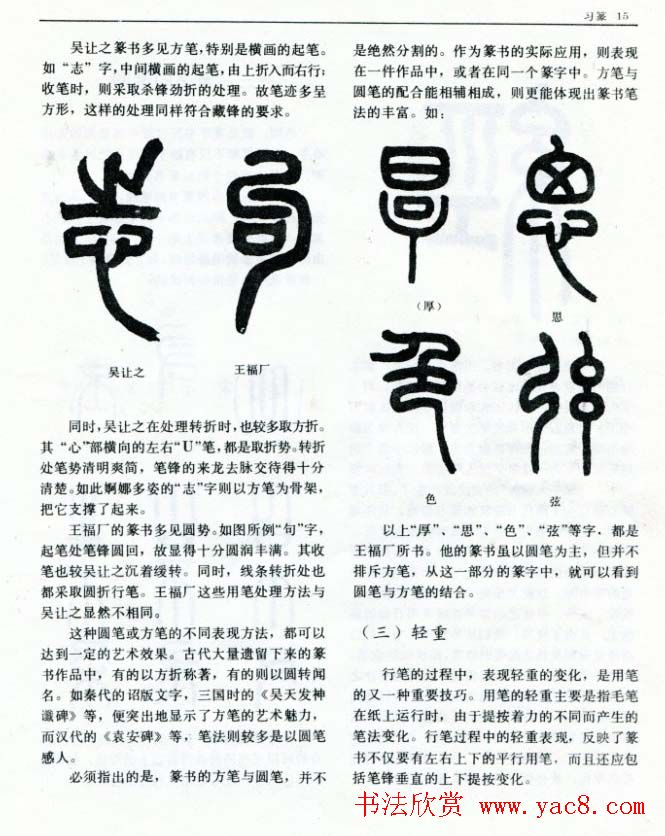 习篆 15
吴让之篆书多见方笔，特别是横画的起笔。
如“志”字，中间横画的起笔，由上折入而右行；
收笔时，则采取杀锋劲折的处理。故笔迹多呈
方形，这样的处理同样符合藏锋的要求。
志
句
吴让之
王福厂
同时，吴让之在处理转折时，也较多取方折。
其“心”部横向的左右“U”笔，都是取折势。转折
处笔势清明爽简，笔锋的来龙去脉交待得十分
清楚。如此婀娜多姿的“志”字则以方笔为骨架，
把它支撑了起来。
王福厂的篆书多见圆势。如图所例“句”字，
起笔处笔锋圆回，故显得十分圆润丰满。其收
笔也较吴让之沉着缓转。同时，线条转折处也
都采取圆折行笔。王福厂这些用笔处理方法与
吴让之显然不相同。
这种圆笔或方笔的不同表现方法，都可以
达到一定的艺术效果。古代大量遗留下来的篆
书作品中，有的以方折称著，有的则以圆转闻
名。如秦代的诏版文字，三国时的《吴天发神
谶碑》等，便突出地显示了方笔的艺术魅力，
而汉代的《袁安碑》等，笔法则较多是以圆笔
感人。
必须指出的是，篆书的方笔与圆笔，并不
是绝然分割的。作为篆书的实际应用，则表现
在一件作品中，或者在同一个篆字中。方笔与
圆笔的配合能相辅相成，则更能体现出篆书笔
法的丰富。如：
厚
思
（厚）
思
色
弦
色
弦
以上“厚”、“思”、“色”、“弦”等字，都是
王福厂所书。他的篆书虽以圆笔为主，但并不
排斥方笔，从这一部分的篆字中，就可以看到
圆笔与方笔的结合。
（三）轻重
行笔的过程中，表现轻重的变化，是用笔
的又一种重要技巧。用笔的轻重主要是指毛笔
在纸上运行时，由于提按着力的不同而产生的
笔法变化。行笔过程中的轻重表现，反映了篆
书不仅要有左右上下的平行用笔，而且还应包
括笔锋垂直的上下提按变化。
书法欣赏 www.yac8.com